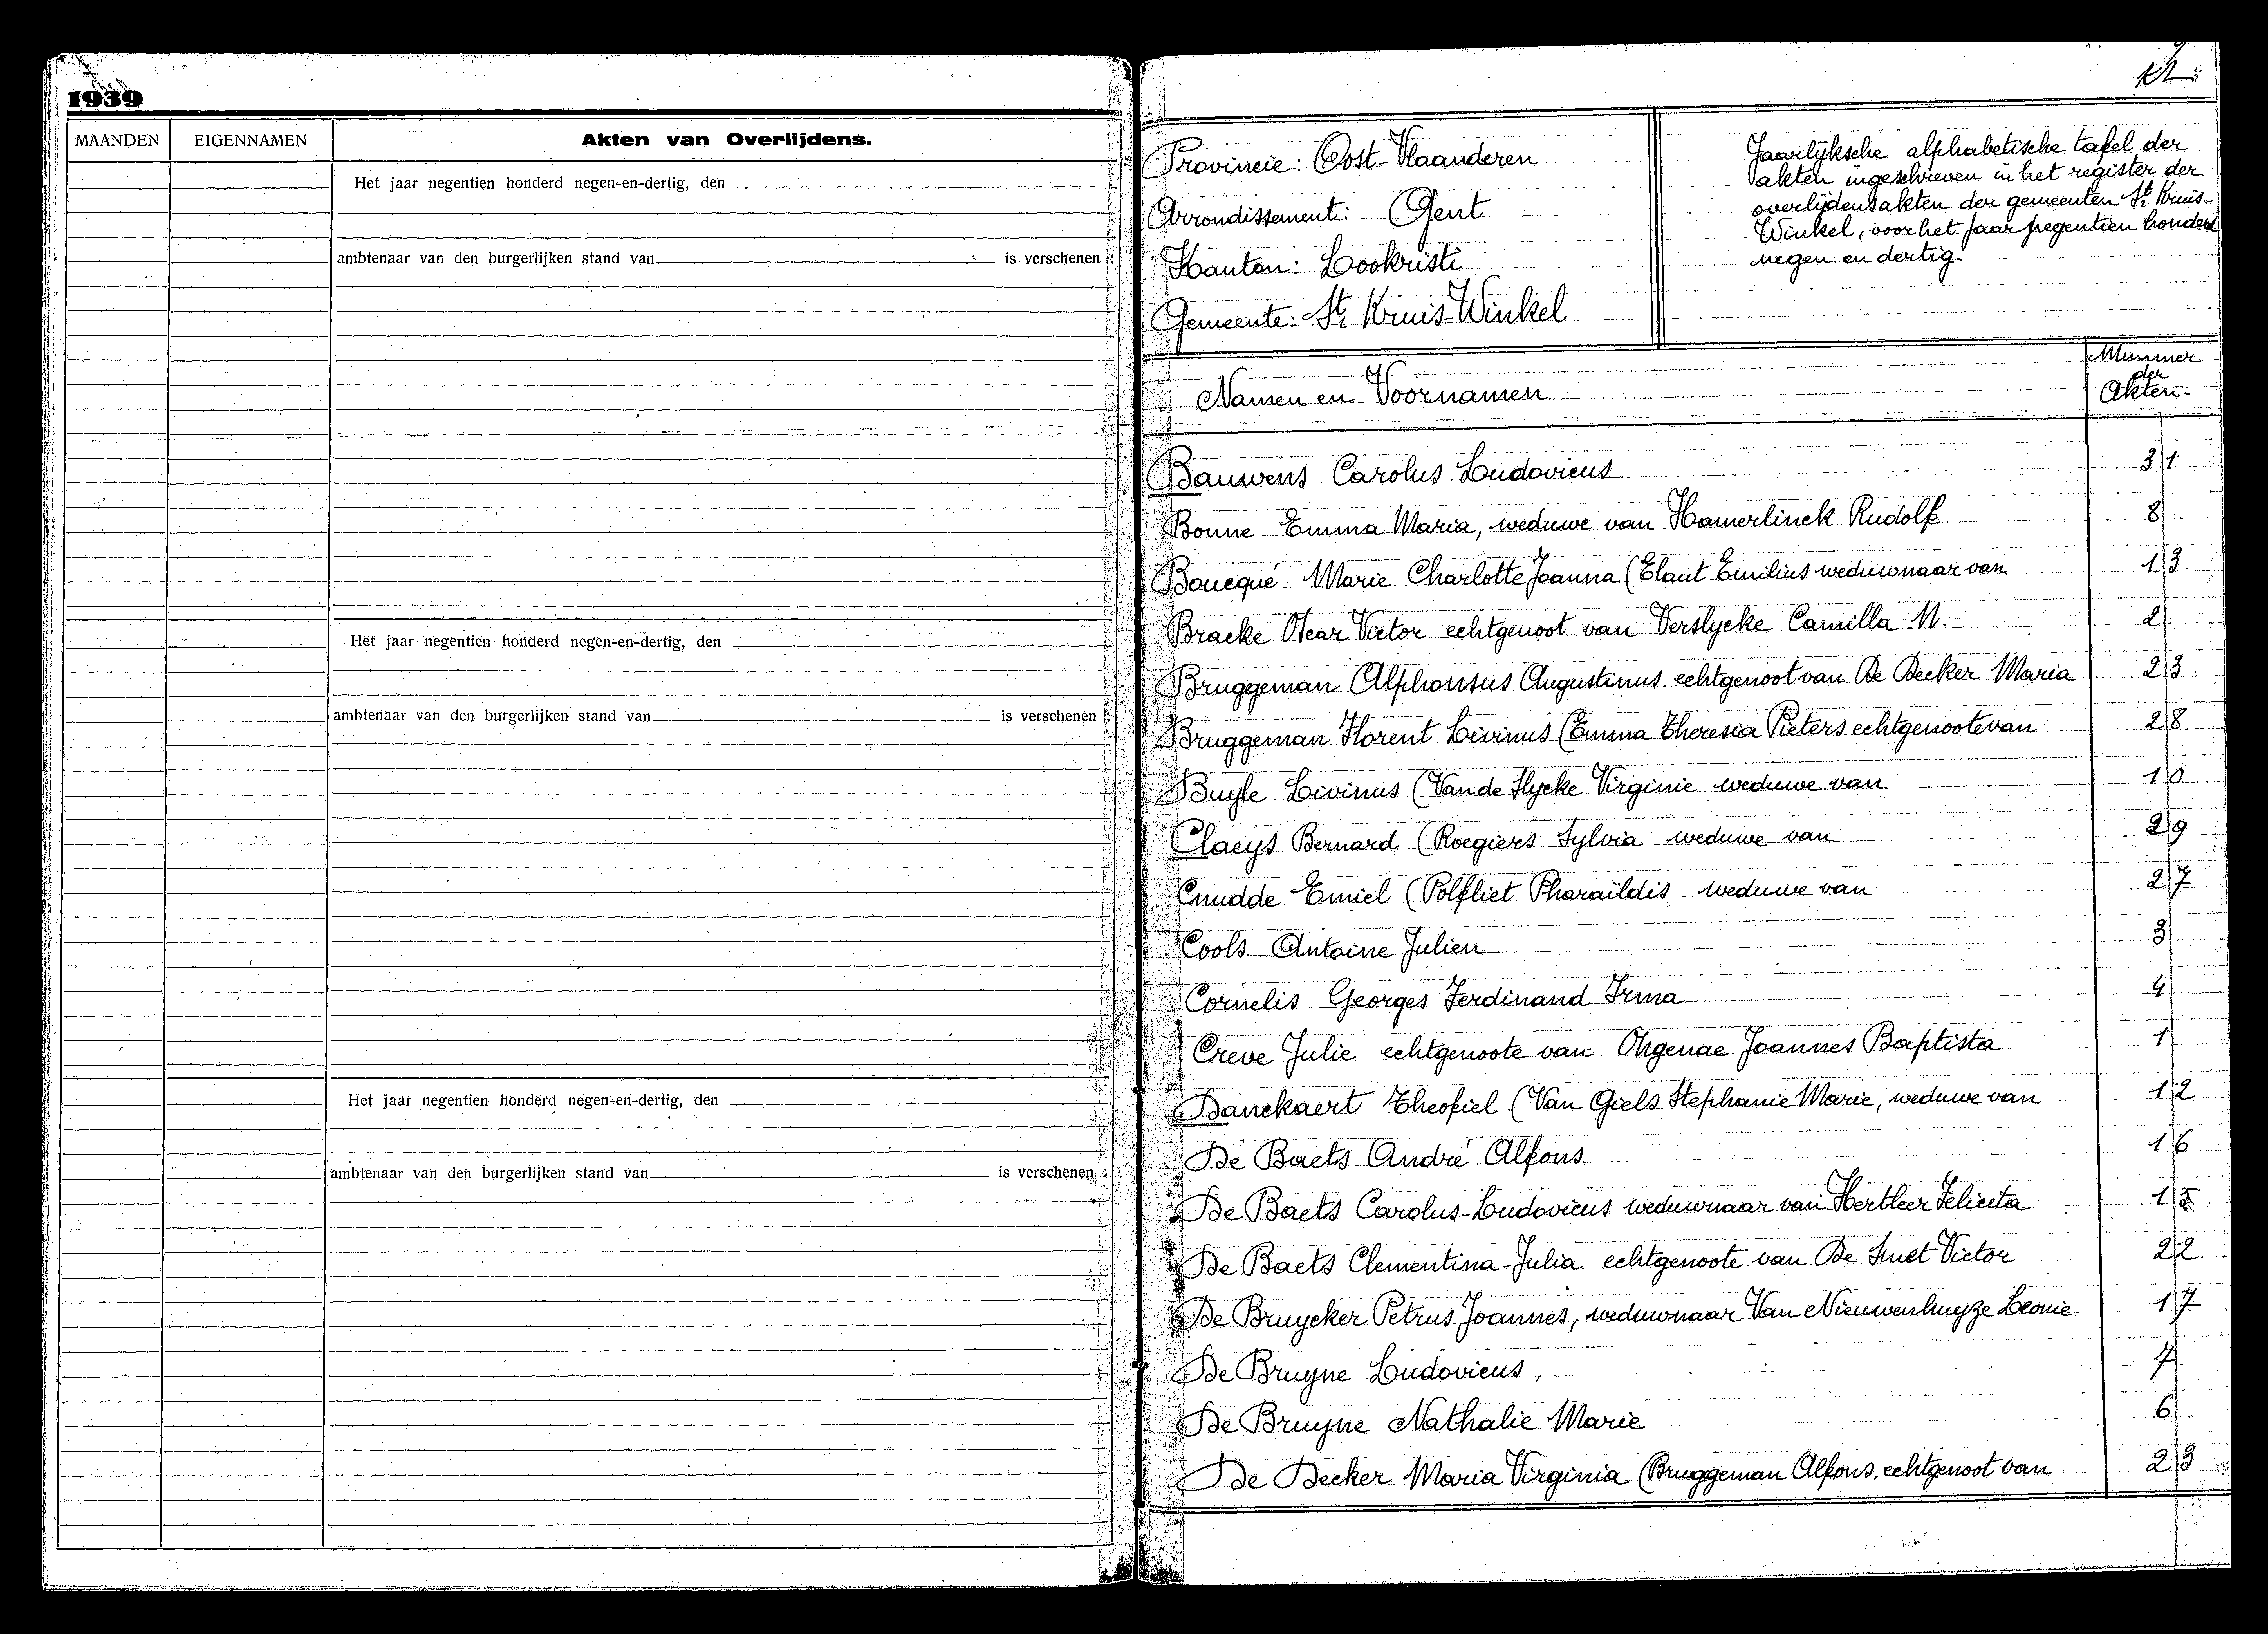 1939
MAANDEN EIGENNAMEN Akten van Overlijdens.
Het jaar negentien honderd negen-en-dertig, den
ambtenaar van den burgerlijken stand van is verschenen :
Het jaar negentien honderd negen-en-dertig, den
ambtenaar van den burgerlijken stand van is verschenen :
Het jaar negentien honderd negen-en-dertig, den
ambtenaar van den burgerlijken stand van is verschenen :
12
Provincie: Oost-Vlaanderen
Arrondissement: Gent
Kanton: Lookristi
Gemeente: St. Kruis-Winkel
Jaarlijksche alphabetische tafel der
akten ingeschreven in het register der
overlijdensakten der gemeenten St. Kruis-
Winkel, voor het jaar negentien honderd
negen en dertig.
Namen en Voornamen Nummer der Akten
Bauwens Carolus Ludovicus 31
Bonne Emma Maria, weduwe van Hamerlinck Rudolf 8
Boucqué Marie Charlotte Joanna (Elaut Emilius weduwnaar van 13
Bracke Oscar Victor echtgenoot van Verslycke Camilla M. 2
Bruggeman Alphonsus Augustinus echtgenoot van De Decker Maria 23
Bruggeman Florent Livinus (Emma Theresia Pieters echtgenoote van 28
Buyle Livinus (Van de Slycke Virginie weduwe van 10
Claeys Bernard (Roegiers Sylvia weduwe van 29
Cnudde Emiel (Polfliet Pharaïldis weduwe van 27
Cools Antoine Julien 3
Cornelis Georges Ferdinand Irma 4
Creve Julie echtgenoote van Ohgenae Joannes Baptista 1
Danckaert Theofiel (Van Giels Stephanie Marie, weduwe van 12
De Baets André Alfons 16
De Baets Carolus-Ludovicus weduwnaar van Hertleer Felicita 15
De Baets Clementina-Julia echtgenoote van De Smet Victor 22
De Bruycker Petrus Joannes, weduwnaar Van Nieuwenhuyze Leonie 17
De Bruyne Ludovicus, 7
De Bruyne Nathalie Marie 6
De Decker Maria Virginia (Bruggeman Alfons, echtgenoot van 23